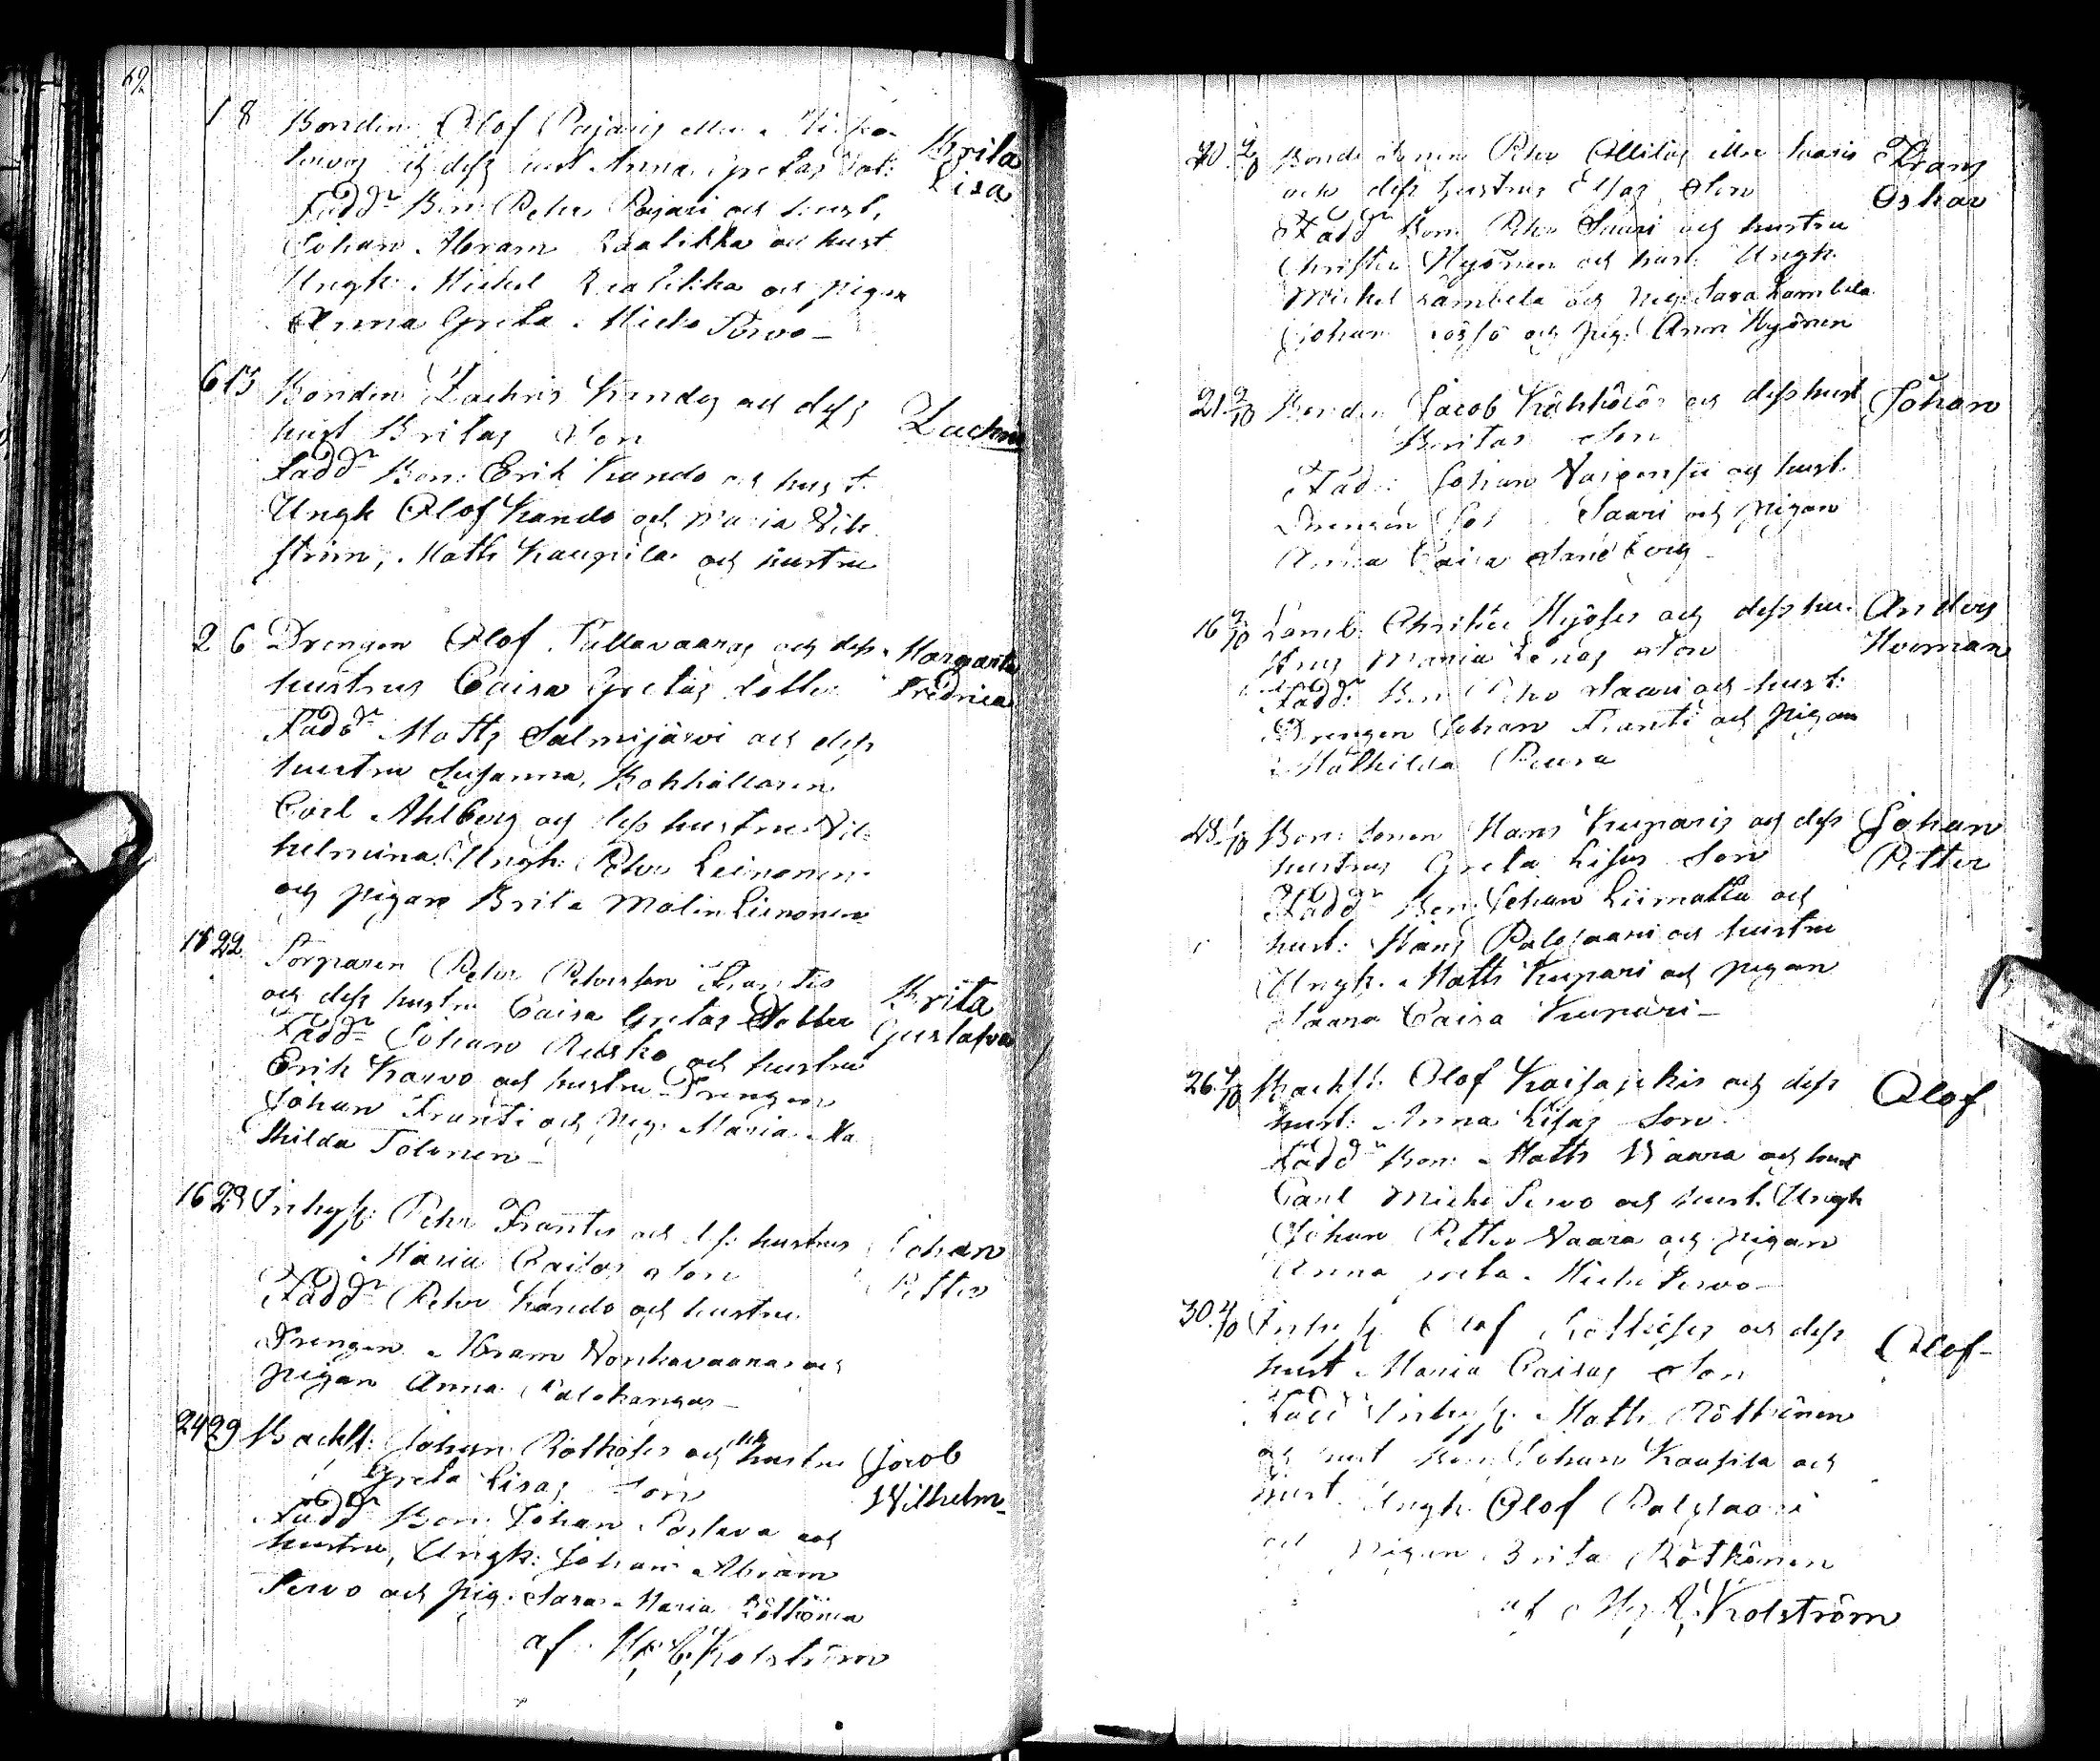 62
1 8 Bonden Olof Pajaris eller
och dess hust Anna Gretas Dot: Brita
Fadd Bon: Peter Pajari och hust, Lisa
Johan Abram Laalikka och hust
Ungk: Michel Laalikka och pigan
Anna Greta Micko Servo
6 15 Bonden Zachris Kandos och dess
hust Britas Son Zachris
Fadd Bon: Erik Kando och hust
Ungk Olof Kando och Maria Vik
ström, Math Kaupila och hustru
2 6 Drengen Olof Pellavaaras och dess Margareta
hustrus Caisa Gretas dotter Fredrica
Fadd Matts Salmijärvi och dess
hustru Susanna, Bokhållaren
Carl Ahlberg och dess hustru Vil
helmina Ungk: Peter Leinonen
och pigan Brita Malin Leinonen
18 22 Torparen Peter Petersson Frantis
och dess hustru Caisa Gretas Dotter Brita
Fadd Johan Ruska och hustru Gustafva
Erik Karvo och hustru Drengen
Johan Franti och pig: Maria Ma
thilda Tolonen
16 29 Inhys: Peter Frantis och dess hustrus Johan
Maria Caisas Son Petter
Fadd Peter Kando och hustru
Drengen Abram Vonkavaaras och
pigan Anna Palokangas
24 29 Backst: Johan Rötkösis och dess hustru Jacob
Greta Lisas Son Wilhelm
Fadd Bon: Johan Portava och
hustru, Ungk: Johan Abram
Servo och pig: Sara Maria Rötkönen
af H. C. Kolström
20 2/10 Bonde Sonen Peter Ollilas eller Saaris Frans
och dess hustrus Elsas Son Oskar
Fadd Bon: Peter Saari och hustru
Christer Hyönen och hust: Ungk
Michel Lambela och pig: Sara Lambela
Johan och pig: Anna Hyönen
21 2/10 Bonden Jacob Kähkölös och dess hust Johan
Britas Son
Fad: Johan Vaisensu och hust.
Drengen Saari och pigan
Anna Caisa Sandberg
16 2/10 Lamb: Christer Hyösis och dess hu Anders
strus Maria Lenas Son Herman
Fadd: Bon Peter Saari och hust:
Drengen Johan Franti och pigan
Mathilda Peura
/10 Bon: Sonen Hans Kuparis och dess Johan
hustrus Greta Lisas Son Petter
Fadd Bon: Johan Liimatta och
hust: Hans Palosaari och hustru
Ungk. Math Kupari och pigan
Saara Caisa Kupari
26 /10 Backst: Olof Kaisajokis och dess Olof
hust: Anna Lisas Son
Fadd Bon: Math Vaara och hust
Carl Micko Servo och hust. Ungk
Johan Petter Vaara och pigan
Anna Greta Micko Servo
30 /10 Inhys Olof Rötkösis och dess Olof
hust Maria Caisas Son
Fadd Inhys: Math Rötkönen
och hust Bon: Johan Kaupila och
hust Ungk Olof Palosaari
och pigan Brita Rötkönen
af H. C. Kolström